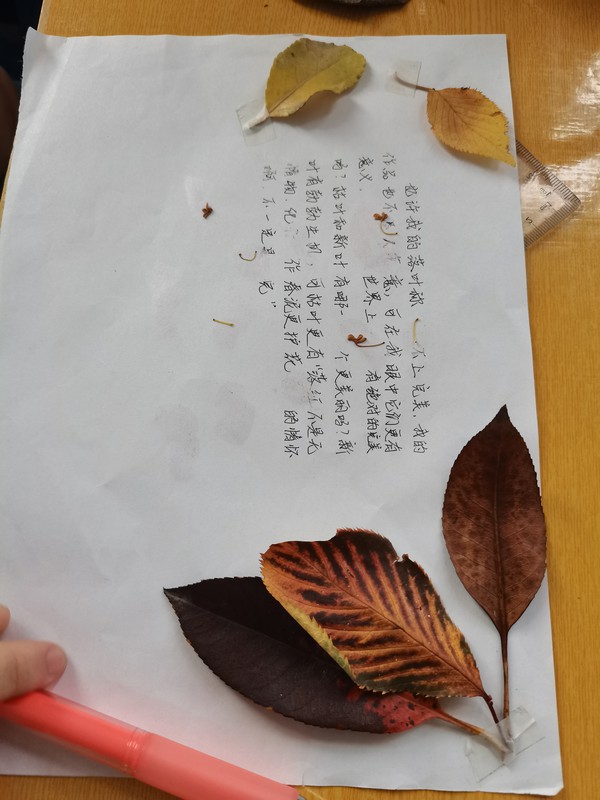 也许我的落叶称 不上完美,我的
作品也不 人 意,可在我眼中它们更有
意义. 世界上 有绝对的完美
吗?枯叶和新叶有哪一 个更美的吗?新
叶有勃勃生机,可枯叶更有“落红不是无
情物,化 作春泥更护花 的情怀
啊.不一定